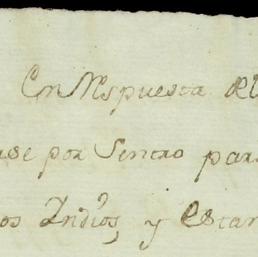 En Respuesta de
se por Sentro para
os Indios, y estan